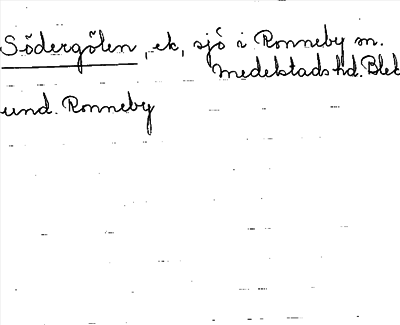 Södergölen, ek, sjö i Ronneby sn.
Medelstads hd. Blek
und. Ronneby